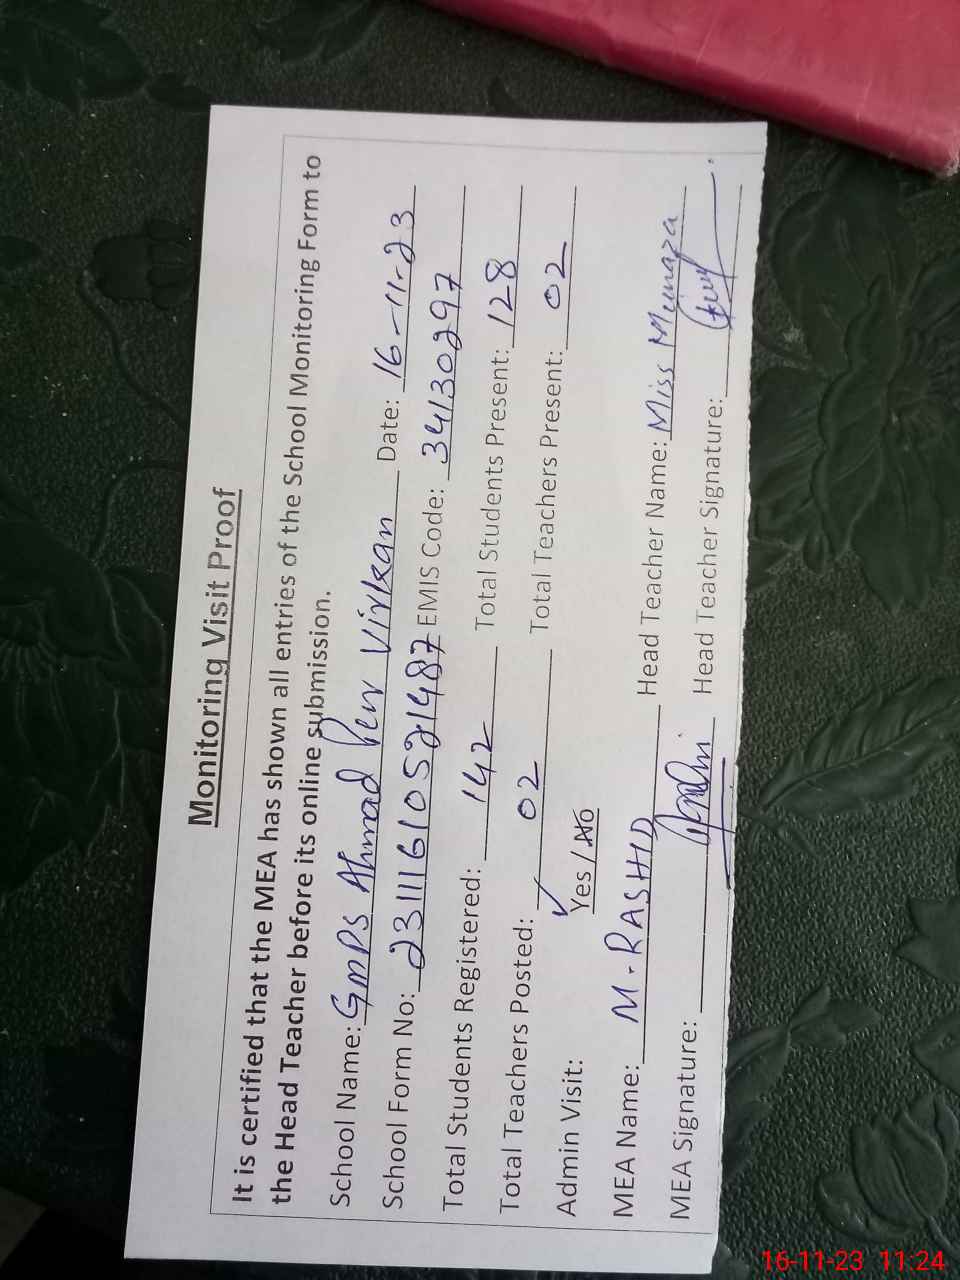 Monitoring Visit Proof
It is certified that the MEA has shown all entries of the School Monitoring Form to
the Head Teacher before its online submission.
School Name: GMPS Ahmad Pew Virkan Date: 16-11-23
School Form No: 23111610521487 EMIS Code: 34130297
Total Students Registered: 142 Total Students Present: 128
Total Teachers Posted: 02 Total Teachers Present: 02
Admin Visit: Yes / No
MEA Name: M. RASHID Head Teacher Name: Miss Munaza
MEA Signature: Head Teacher Signature:
16-11-23 11:24